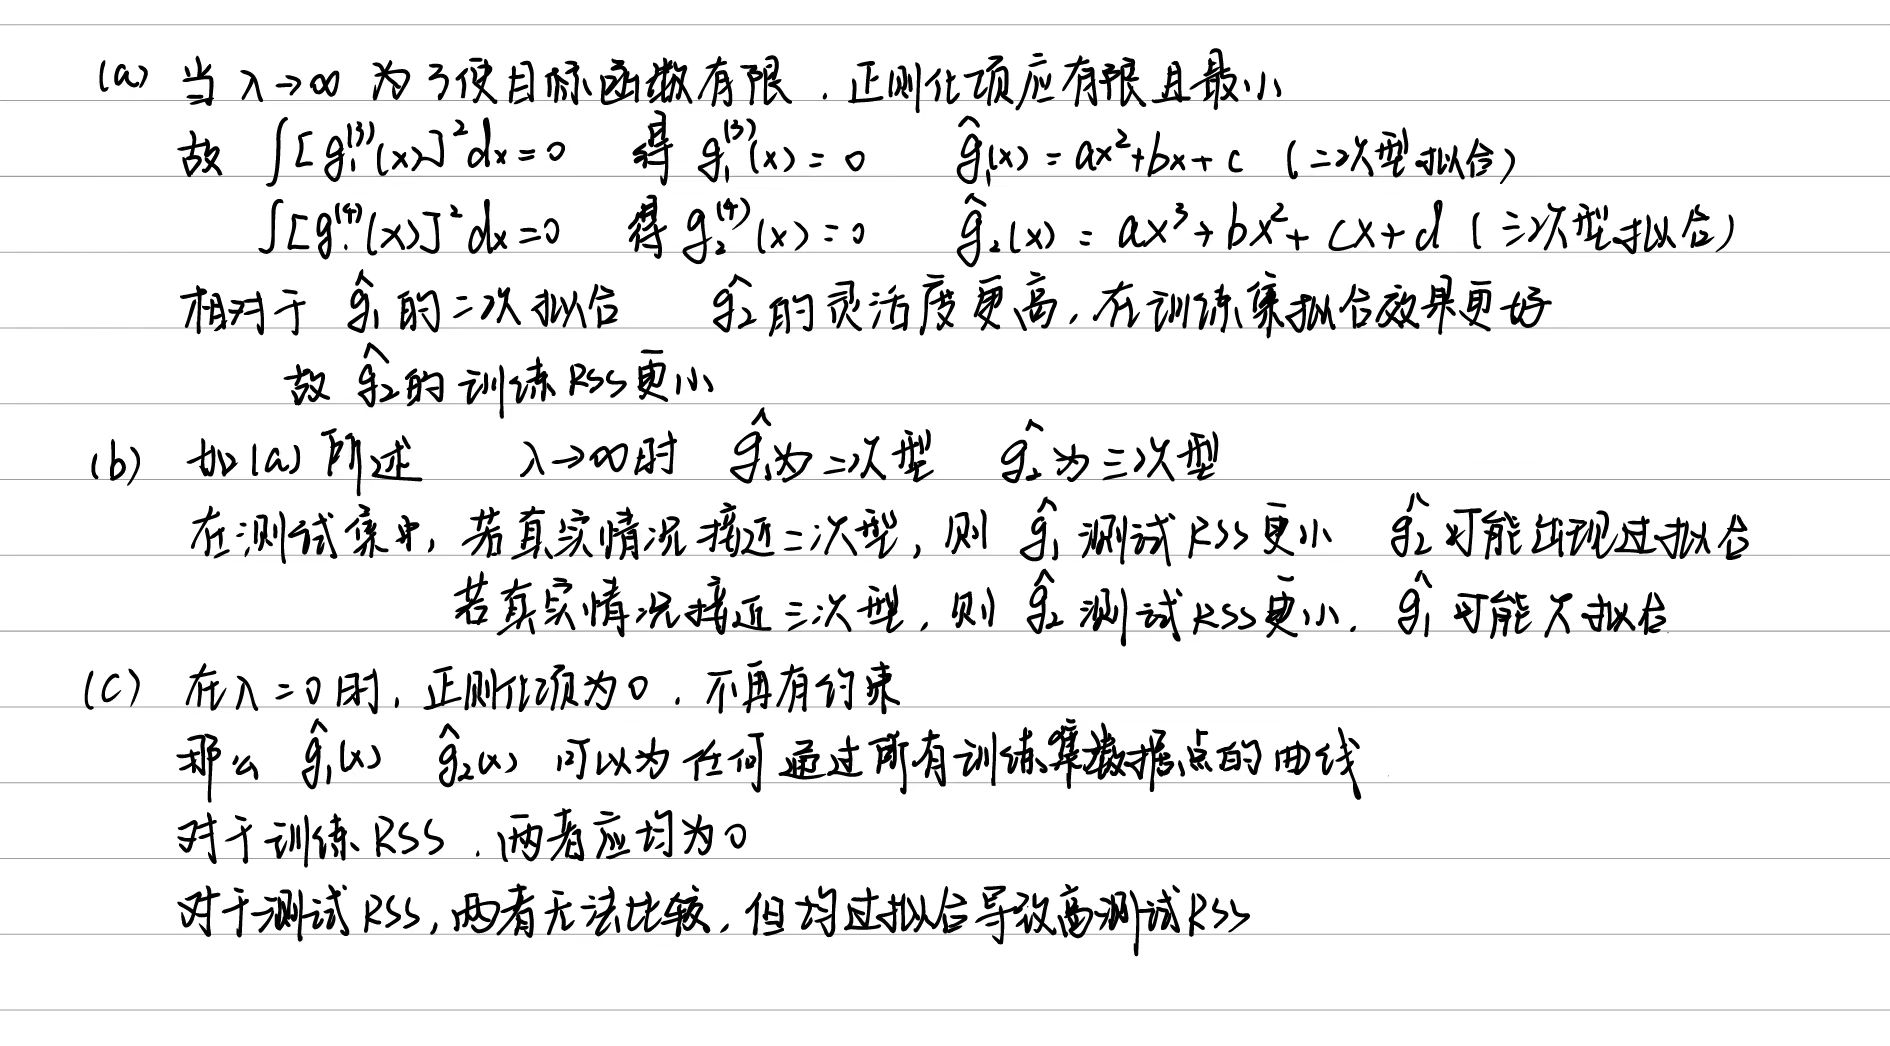 (a) 当 λ→∞ 为了使目标函数有限，正则化项应有限且最小
故 ∫[g₁⁽³⁾(x)]²dx=0 得 g₁⁽³⁾(x)=0 ĝ₁(x)=ax²+bx+c (二次型拟合)
∫[g.⁽⁴⁾(x)]²dx=0 得 g₂⁽⁴⁾(x)=0 ĝ₂(x)=ax³+bx²+cx+d (三次型拟合)
相对于 ĝ₁的二次拟合 ĝ₂的灵活度更高，在训练集拟合效果更好
故 ĝ₂的训练RSS更小
(b) 如(a)所述 λ→∞时 ĝ₁为二次型 ĝ₂为三次型
在测试集中，若真实情况接近二次型，则 ĝ₁测试RSS更小 ĝ₂可能出现过拟合
若真实情况接近三次型，则 ĝ₂测试RSS更小，ĝ₁可能欠拟合
(c) 在λ=0时，正则化项为0，不再有约束
那么 ĝ₁(x) ĝ₂(x) 可以为任何通过所有训练集数据点的曲线
对于训练RSS，两者应均为0
对于测试RSS，两者无法比较，但均过拟合导致高测试RSS